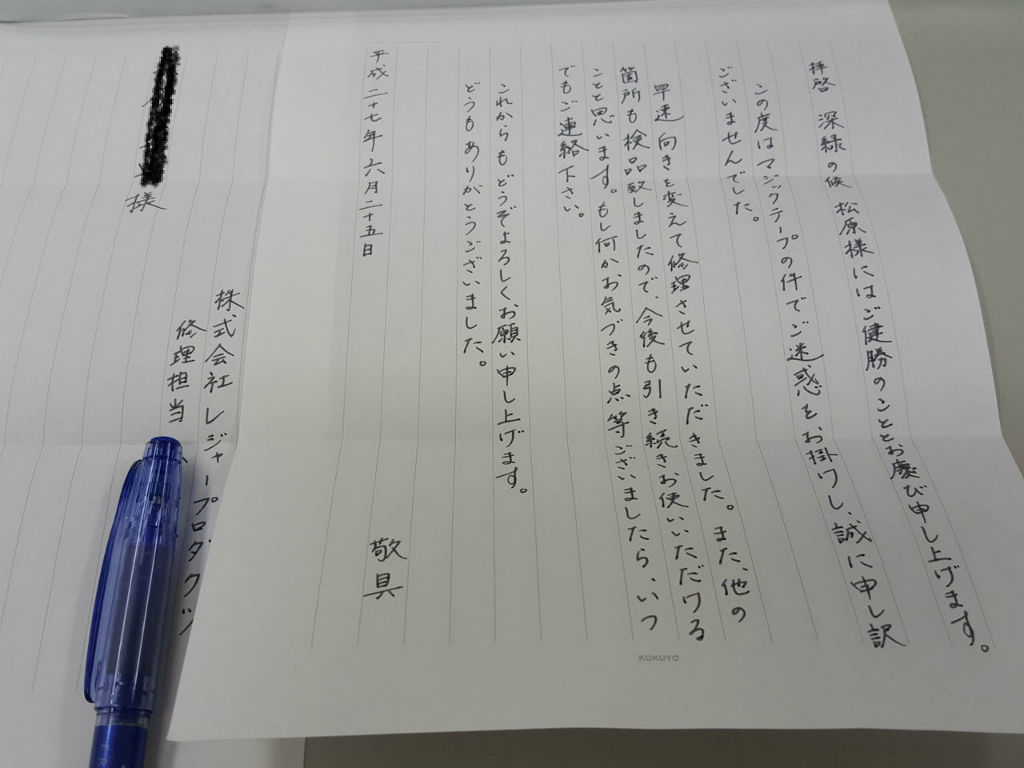 拝啓 深緑の候 松原様にはご健勝のこととお慶び申し上げます。
この度はマジックテープの件でご迷惑をお掛けし、誠に申し訳
ございませんでした。
早速 向きを変えて修理させていただきました。また、他の
箇所も検品致しましたので、今後も引き続きお使いいただける
ことと思います。もし何かお気づきの点等ございましたら、いつ
でもご連絡下さい。
これからも どうぞよろしくお願い申し上げます。
どうもありがとうございました。
敬具
平成二十七年六月二十五日
株式会社レジャープロダクツ
修理担当
様
KOKUYO